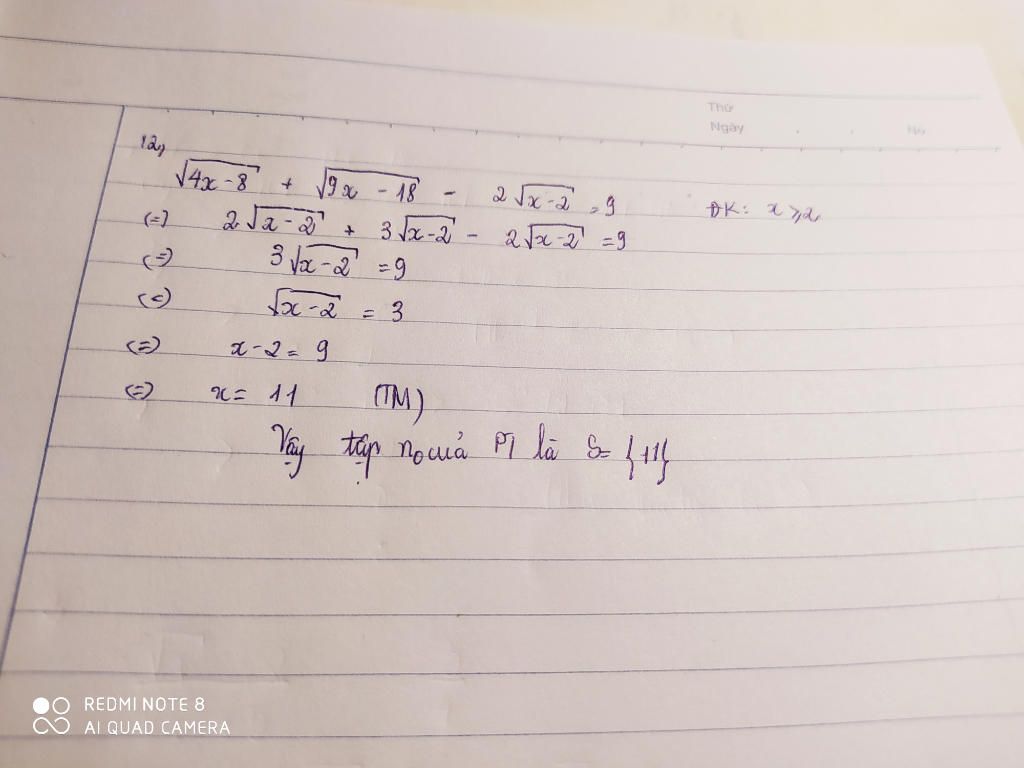 Thứ
Ngày No
12,
√4x-8 + √9x - 18 - 2√x-2 = 9 ĐK: x ⩾ 2
(=) 2√x-2 + 3√x-2 - 2√x-2 = 9
(=) 3√x-2 = 9
(=) √x-2 = 3
(=) x-2 = 9
(=) x = 11 (TM)
Vậy tập no của PT là S= {11}
REDMI NOTE 8
AI QUAD CAMERA